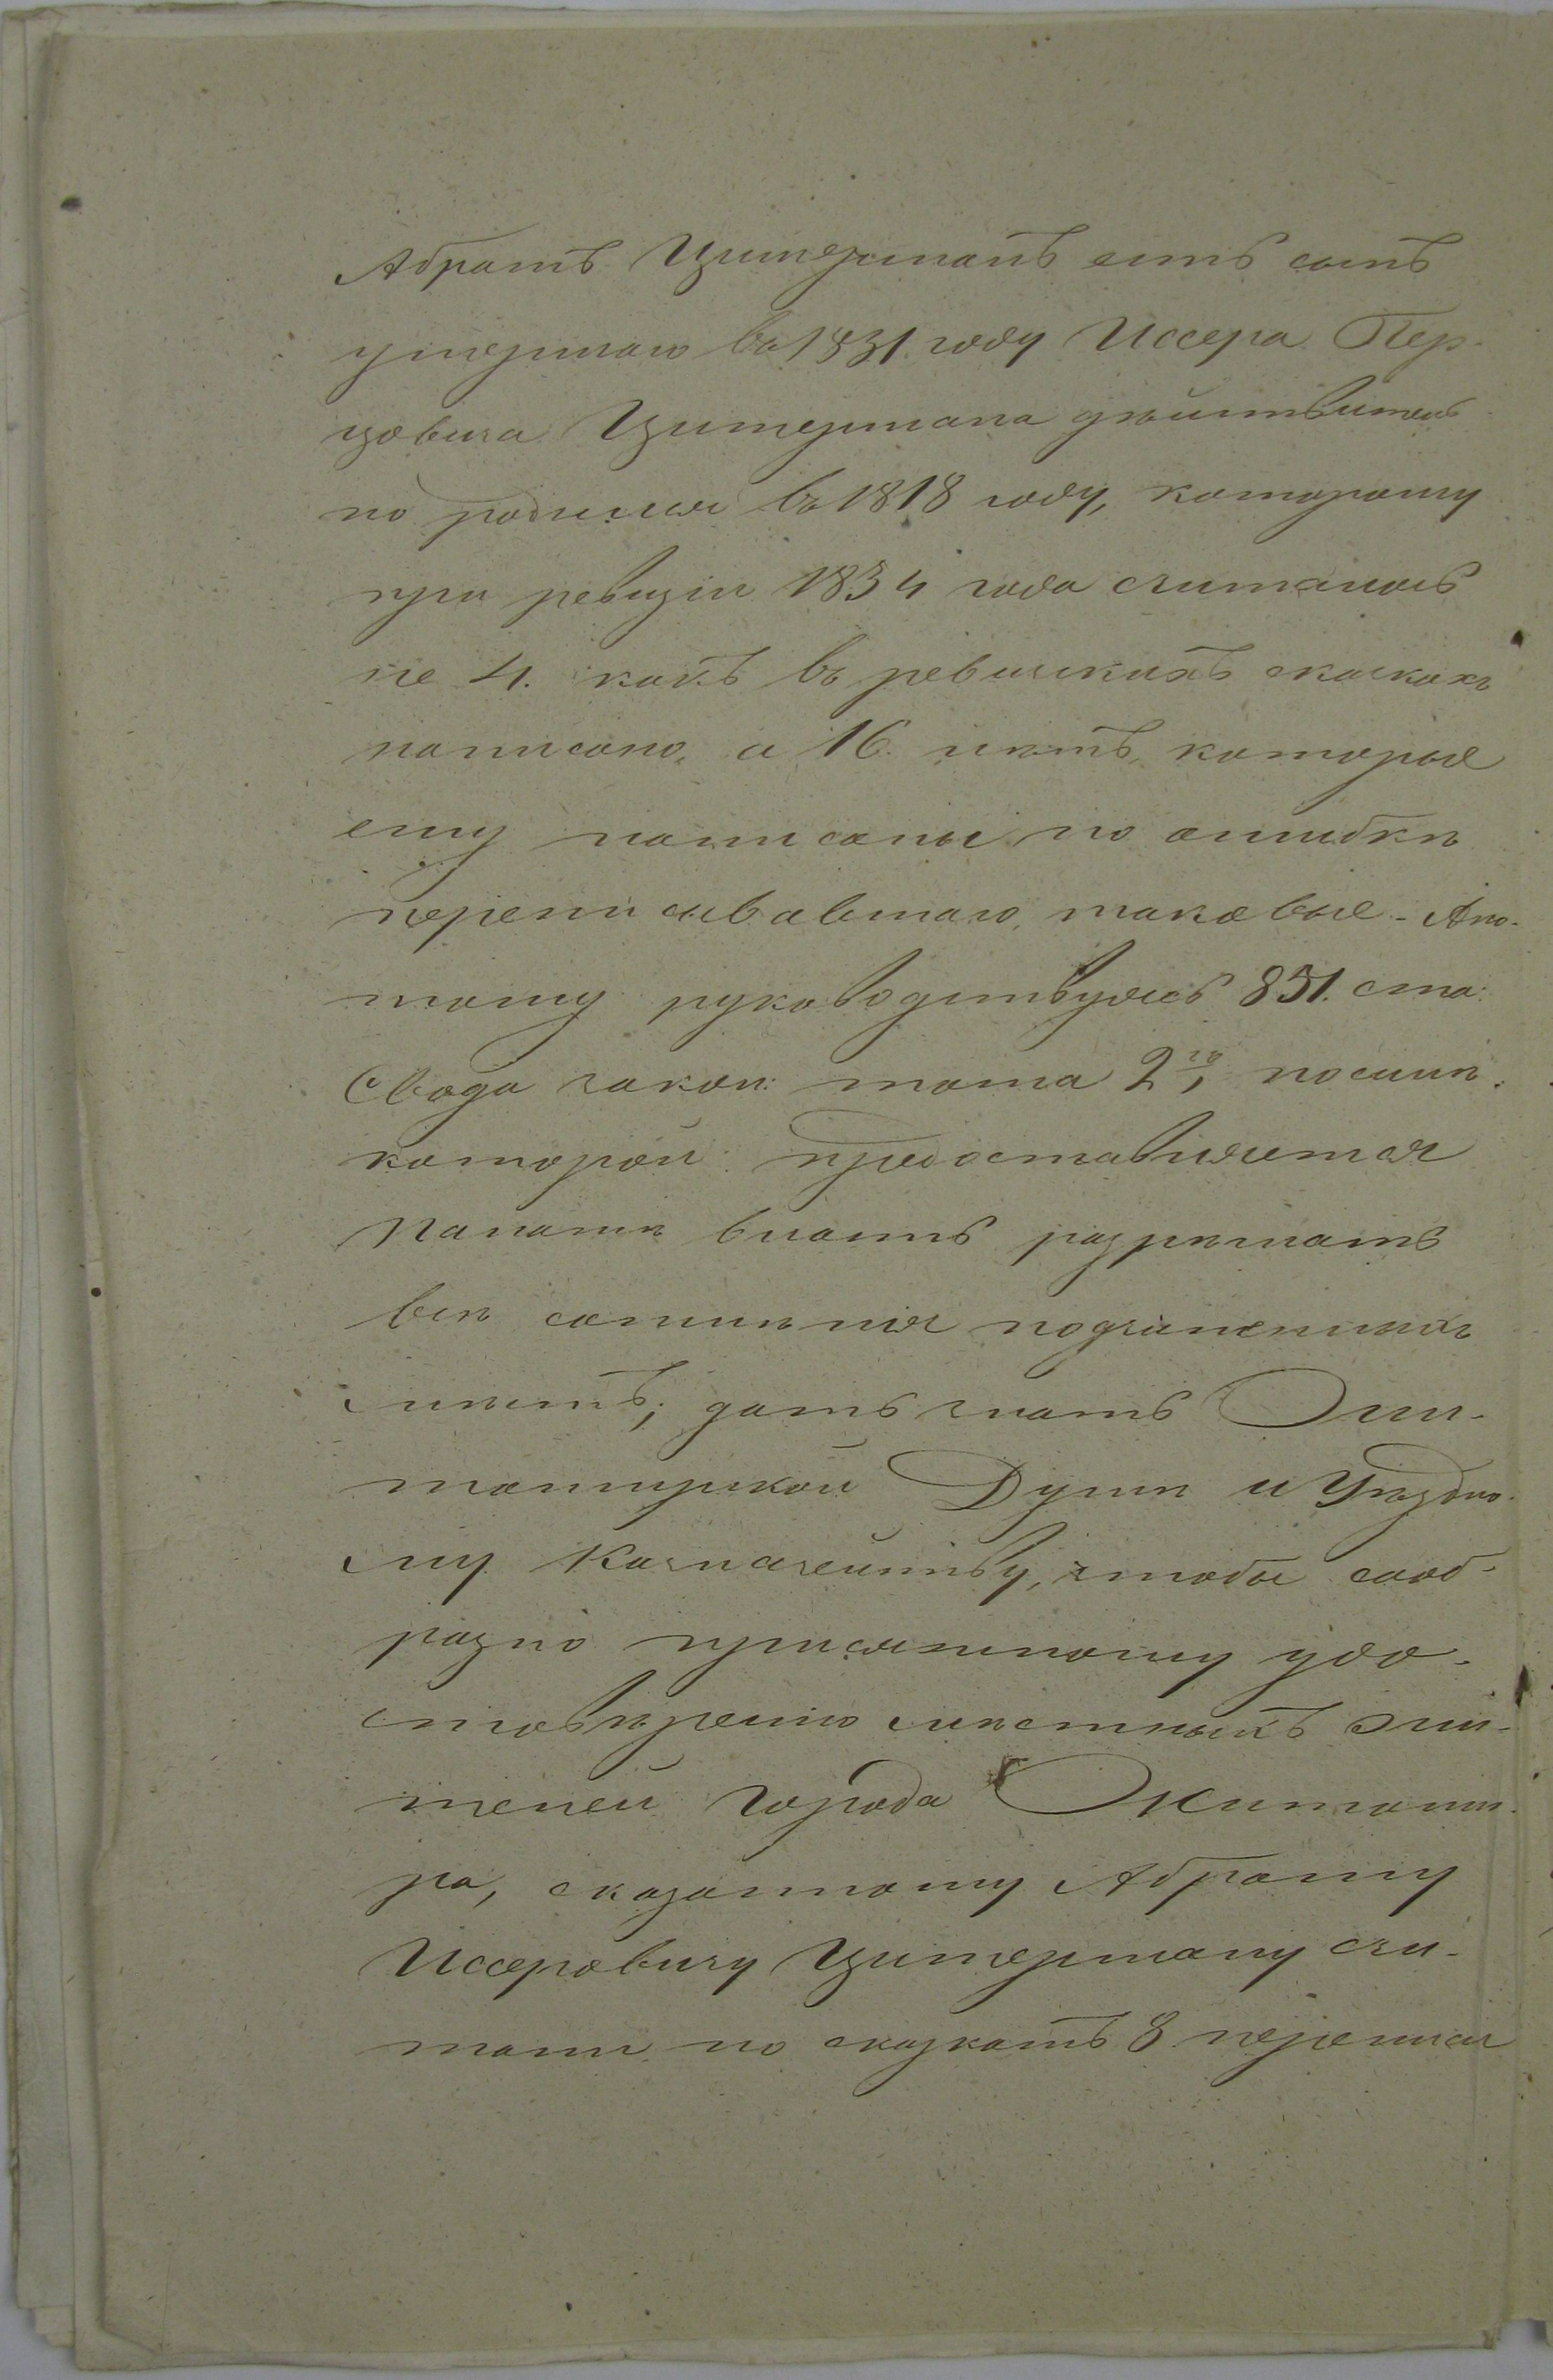 Абрамъ Цитерманъ есть сынъ
умершаго въ 1831. году Иссера Пер-
цовича Цитермана дѣйствитель-
но родился въ 1818 году, которому
при ревизіи 1834 года считалось
не 4. какъ въ ревизскихъ сказкахъ
написано, а 16. лѣтъ, которые
ему написаны по ошибкѣ
переписывавшаго таковые. А по-
тому руководствуясь 831. ста:
Свода закон: тома 2го, по силѣ
которой предоставляется
Палатѣ власть разрѣшать
всѣ сомнѣнія подчиненныхъ
мѣстъ; дать знать Жи-
томирской Думѣ и Уѣздно-
му Казначейству, чтобы сооб-
разно присяжному удо-
стовѣренію мѣстныхъ жи-
телей города Житоми-
ра, сказанному Абраму
Иссеровичу Цитерману счи-
тали по сказкамъ 8 переписи